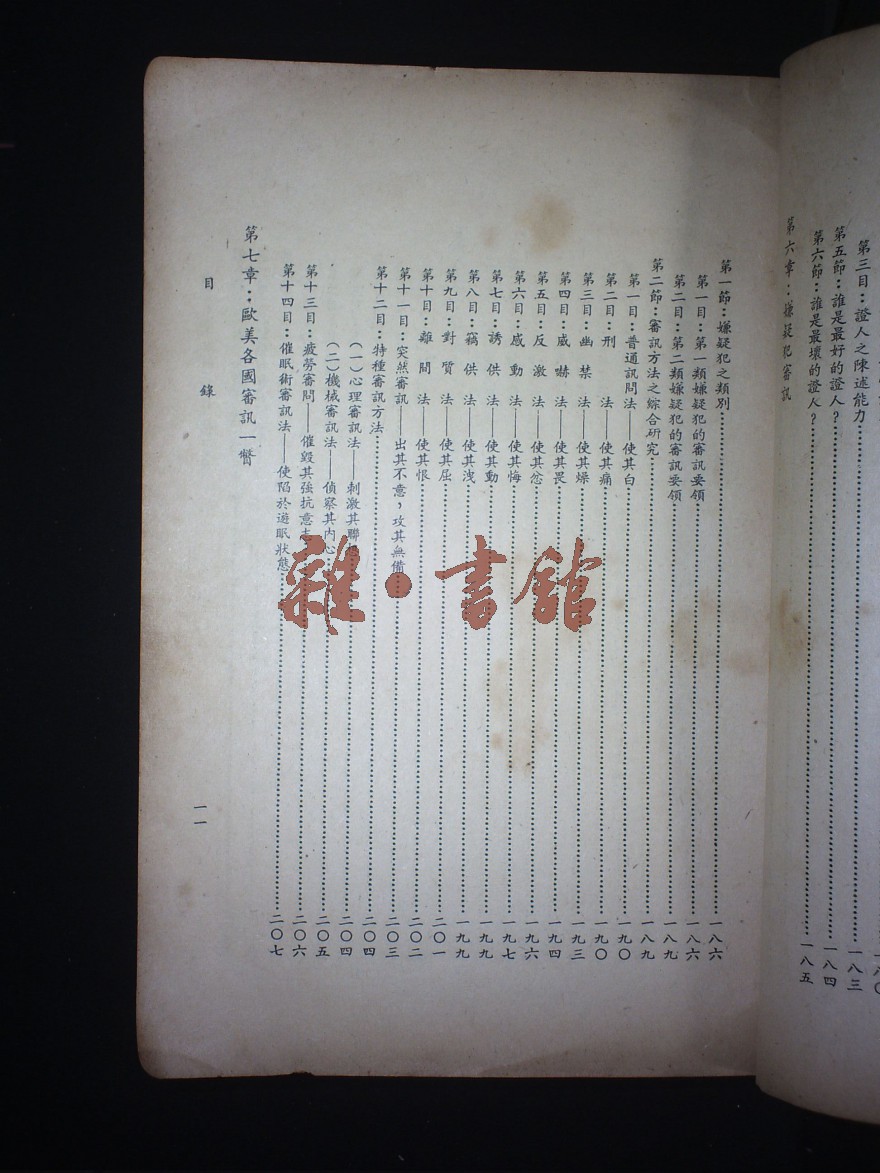 第三目：證人之陳述能力……一八三
第五節：誰是最好的證人？……一八四
第六節：誰是最壞的證人？……一八五
第六章：嫌疑犯審訊
第一節：嫌疑犯之類別……一八六
第一目：第一類嫌疑犯的審訊要領……一八六
第二目：第二類嫌疑犯的審訊要領……一八九
第二節：審訊方法之綜合研究……一八九
第一目：普通訊問法——使其白……一九〇
第二目：刑法——使其痛……一九〇
第三目：幽禁法——使其燥……一九三
第四目：威嚇法——使其畏……一九四
第五目：反激法——使其忿……一九六
第六目：感動法——使其悔……一九七
第七目：誘供法——使其動……一九九
第八目：竊供法——使其洩……一九九
第九目：對質法——使其屈……二〇一
第十目：離間法——使其恨……二〇二
第十一目：突然審訊——出其不意，攻其無備……二〇三
第十二目：特種審訊方法……二〇四
（一）心理審訊法——刺激其聯……二〇四
（二）機械審訊法——偵察其內心……二〇五
第十三目：疲勞審問——催毀其強抗意志……二〇六
第十四目：催眠術審訊法——使陷於遊眠狀態……二〇七
第七章：歐美各國審訊一瞥
目錄
一一
雜·書館